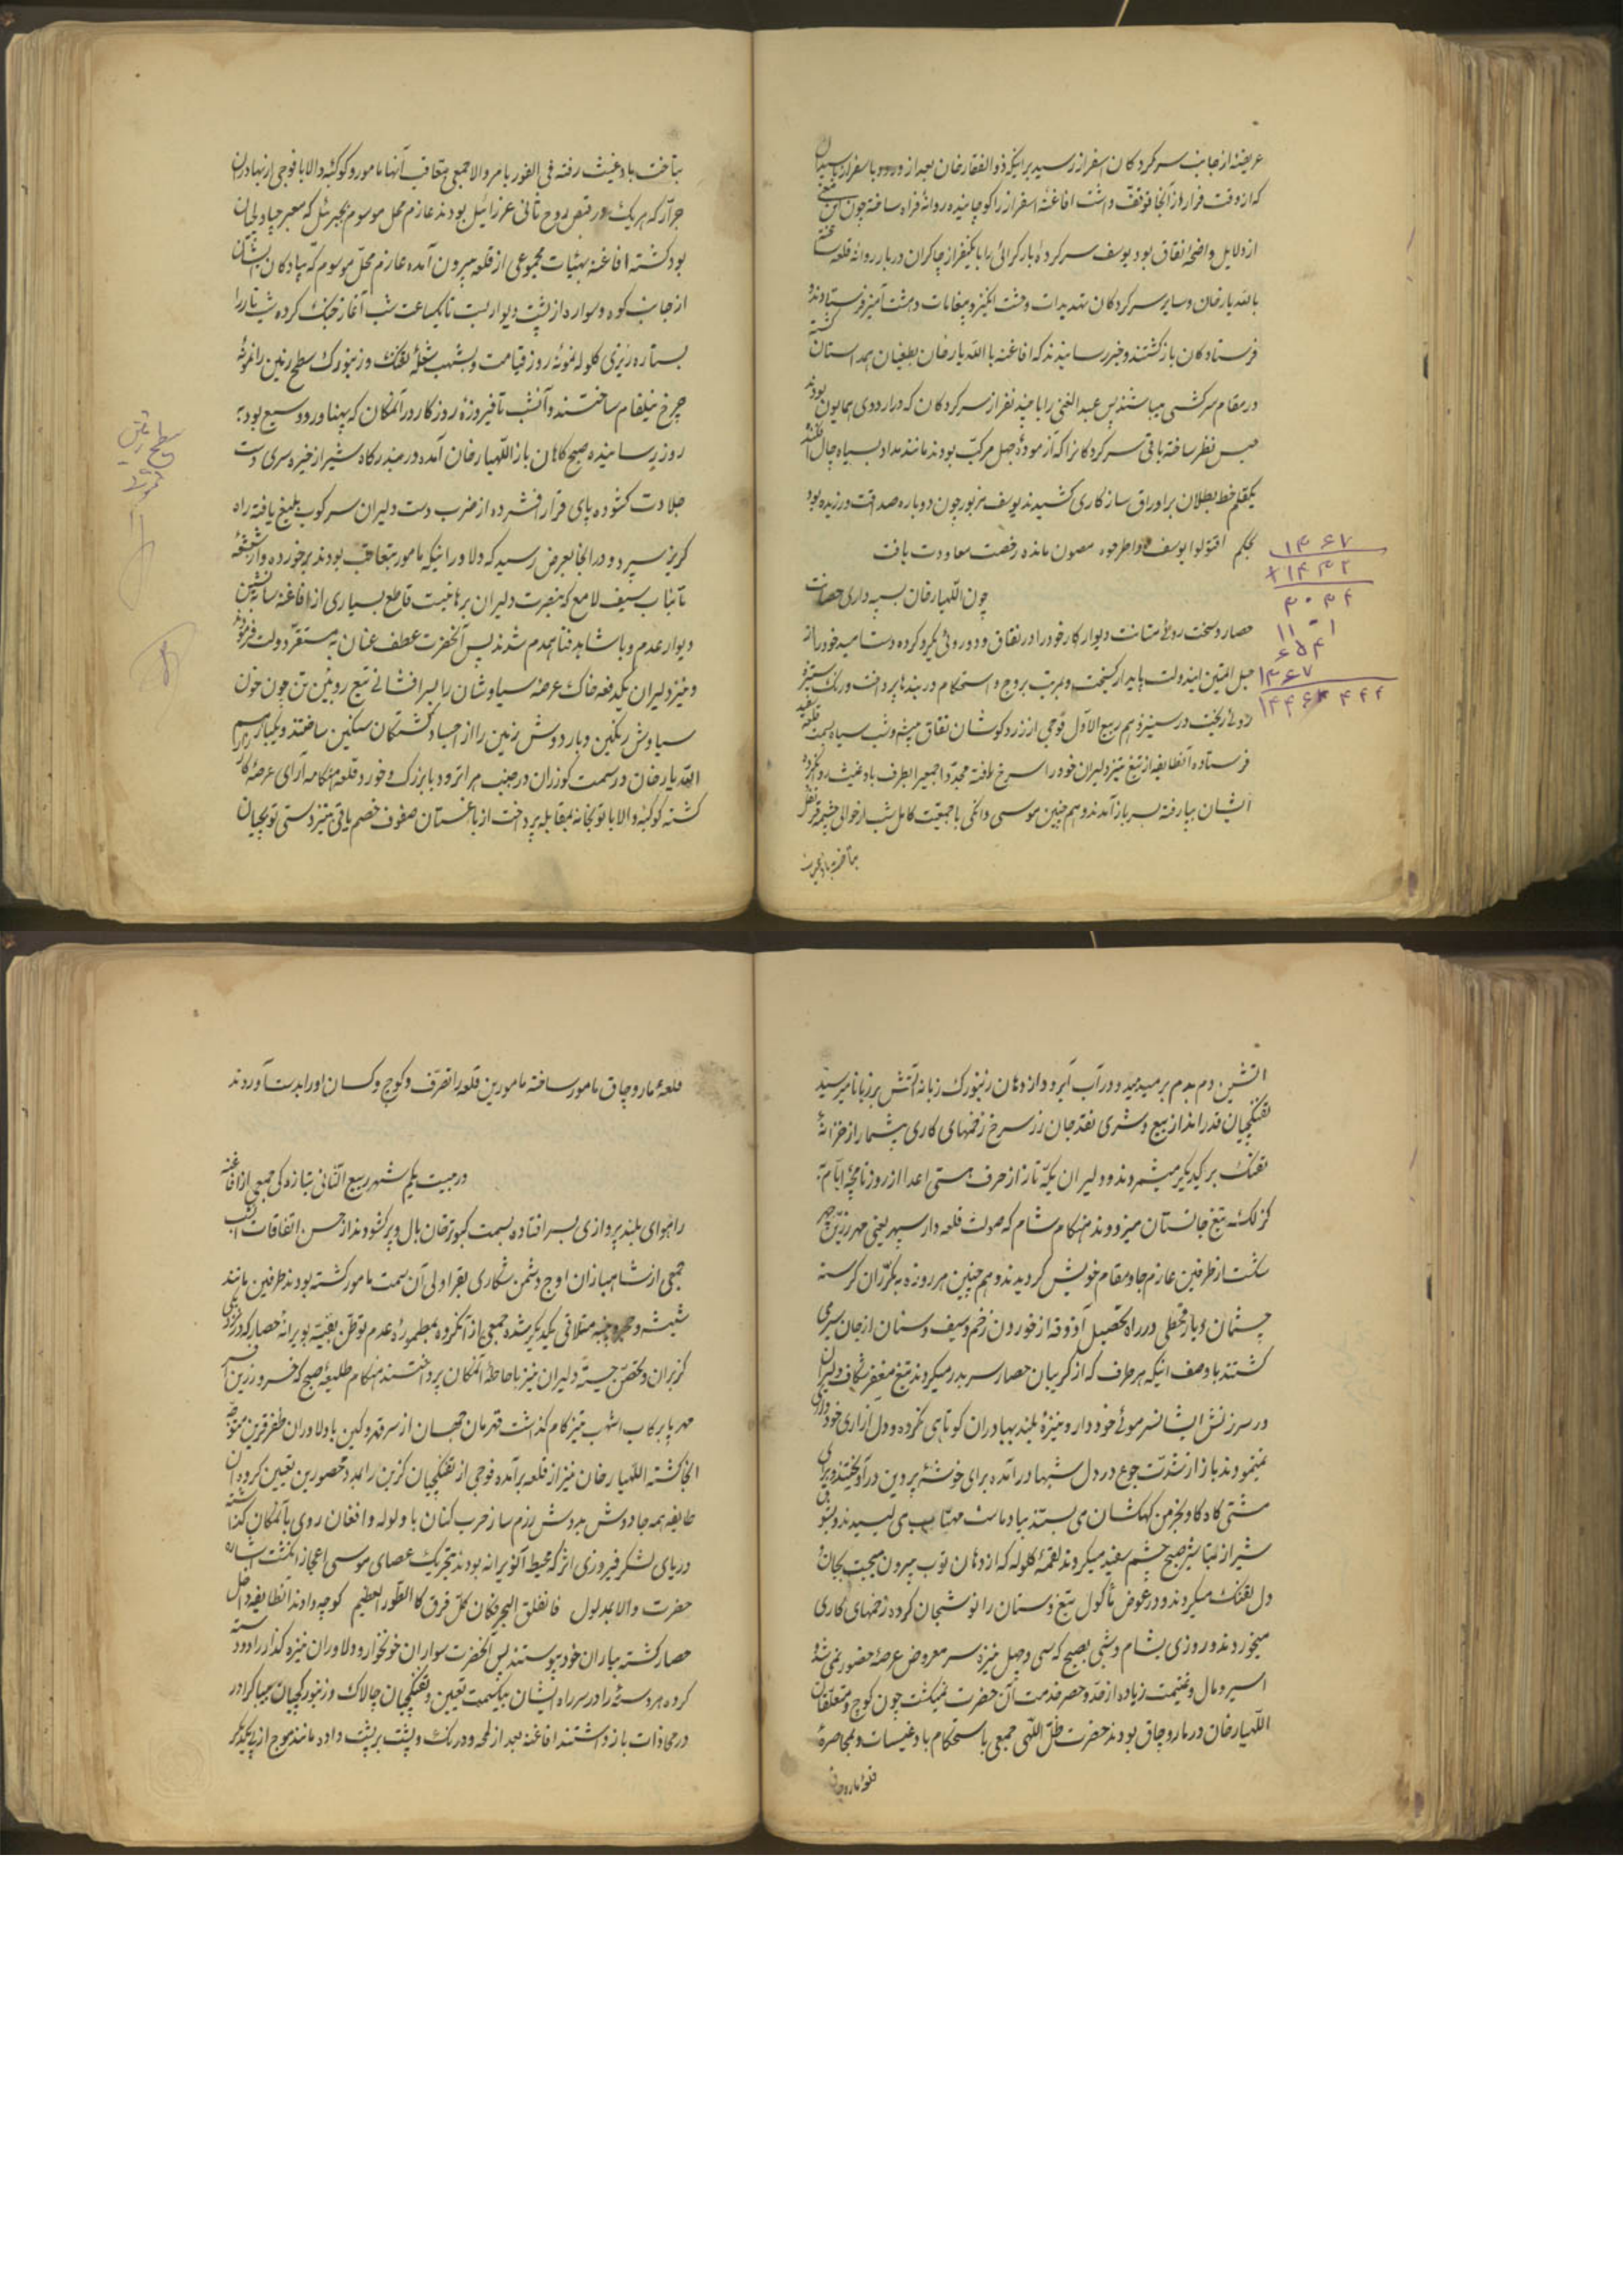 عریضهٔ از جانب سرکردکان اسفراز رسید براینکه ذوالفقار خان بعد از ورود باسفراز با سیدال
که از وقت فرار از آنجا توقف داشت افاغنهٔ اسفراز را کوچانیده روانهٔ فراه ساخته چون این معنی
از دلایل واضحهٔ نفاق بود یوسف سرکردهٔ بارکزائی را با یکنفر از چاکران دربار روانهٔ قلعه ساخته
بالله یار خان و سایر سرکردکان تهدیدات وحشت انگیز و پیغامات دهشت آمیز فرستادند و
فرستادکان بازکشتند و خبر رسانیدند که افاغنه با الله یار خان بطغیان همداستان کشته
در مقام سرکشی میباشند پس عبدالغنی را با چند نفر از سرکردکان که در اردوی همایون بودند
حبس نظر ساخته باقی سرکردکانرا که آزمودهٔ جهل مرکب بودند مانند مداد بسیاه چال افکنده
یکقلم خط بطلان بر اوراق سازکاری کشیدند یوسف مزبور چون دوباره صداقت ورزیده بود
بحکم اقتلوا یوسف او اطرحوه مصون مانده رخصت معاودت یافت
چون اللهیار خان بسپه داری حصانت
حصار و سخت روئی متانت دیوار کار خود را در نفاق و دوروئی یکرو کرده دست امید خود را از
حبل المتین ایندولت پایدار کسیخت و بمرمت بروج و استحکام دربندها پرداخت و رنک ستیز
روئی ریخت در سیزدهم ربیع الاول فوجی از زردکوشان نفاق پیشه و شب سیاه بسمت قلعه سفید
فرستاده آنطایفه از تیغ تیز دلیران خود را سرخ یافته مجدداً جمعی را بطرف بادغیث روانکرده
ایشان بپا رفته بسر باز آمدند و هم چنین موسی دانکی با جمعیت کامل شب از حوالی چشمه قرنفل
بتاخت بادغیث
بتاخت بادغیث رفته فی الفور بامر والا جمعی بتعاقب آنها مامور و کوکبهٔ والا با فوجی از بهادران
جرار که هر یک در قبض روح ثانی عزرائیل بودند عازم محل موسوم بجبرئیل که معبر چپاولیان
بود کشته افاغنه بهیئات مجموعی از قلعه بیرون آمده عازم محل موسوم که پیادکان ایشان
از جانب کوه و سواره از پشت دیوار بست تا یکساعت شب آغاز جنک کرده شب تار را
بستاره ریزی کلوله نمونهٔ روز قیامت و بشهب شعلهٔ تفنک و زنبورک سطح زمین را نمونهٔ
چرخ نیلفام ساختند و آنشب تا فیروزهٔ روزکار در آنمکان که پهناور و وسیع بود به
روز رسانیده صبح کاهان باز اللهیار خان آمده در مندرکاه شیر از خیره سری دست
جلادت کشوده پای قرار افشرده از ضرب دست دلیران سرکوب بلیغ یافته راه
کریز سپرد و در انجا بعرض رسید که دلاورانیکه مامور بتعاقب بودند برخورده و از شعشعه
تابناب سیف لامع که بنصرت دلیران برهانیست قاطع بسیاری از افاغنه سایه نشین
دیوار عدم و با شاهد فنا همدم شدند پس آنحضرت عطف عنان به مستقر دولت فرمودند
و نیز دلیران یکدفعه خاک عرصه سیاوشان را بسرافشانی تیغ روئین تن چون خون
سیاوش رنکین و بار دوش زمین را از اجساد کشتکان سنکین ساختند و یکبار هم
الله یار خان در سمت کوزران در جنب هرات رود با بزرک و خورد قلعه هنکامه آرای عرصهٔ کارزار
کشته کوکبهٔ والا با توپخانه بمقابله پرداخت از باغستان صفوف خصم باقی تیزدستی توپچیان
سطح زمین
را نمونهٔ
۱۳۶۷
+۱۶۴۲
۳۰۳۴
۱۱۰۱
۶۵۴
۱۳۶۷
۱۴۴۶۴ ۴۴۲
آتشین دم بدم بر میدمید و در آب آبرود از دهان زنبورک زبانه آتش بر زبانها میرسید
تفنکچیان قدرانداز ببیع و شری نقد جان زر سرخ زخمهای کاری بیشمار از خزانهٔ
تفنک بر یکدیکر میشمردند و دلیران یکه تاز از حرف هستی اعدا از روزنامچهٔ ایام به
کزلک تیغ جانستان میزدودند هنکام شام که صولت قلعه دار سپهر یعنی مهر زرین چهر
شکست از طرفین عازم جا و مقام خویش کردیدند و هم چنین هر روزه به مکرران کرسنه
چشمان دیار قحطی در راه تحصیل آذوقه از خوردن زخم و سیف و سنان از جان سیر می
کشتند با وصف اینکه هر طرف که از کریبان حصار سر بدر میکردند تیغ مغفر شکاف دلیران
در سرزنش ایشان سرموئی خود دار و نیزهٔ بلند بهادران کوتاهی نکرده و دل آزاری خودداری
نمینمودند باز از شدت جوع در دل شبها در آمده برای خوشهٔ پروین در آویخته و برای
مشتی کاه کاو بخرمن کهکشان می بستند بیاد ماست مهتاب لب می لیسیدند و بشوق
شیر از لبناشیر صبح چشم سفید میکردند لقمهٔ کلوله که از دهان توپ بیرون میجست بجان و
دل بلعیدند میکردند و در عوض مأکول تیغ و سنان را نوشجان کرده زخمهای کاری
میخوردند و روزی بشام و شبی بصبح که سی و چهل نیزه سر معروض عرصهٔ حضور نمی شد و
اسیر و مال و غنیمت زیاده از حد و حصر قدمت آن حضرت نمیکشت چون کوچ و متعلقان
اللهیار خان در ماروچاق بودند حضرت ظل اللهی جمعی باستحکام بادغیسات و محاصرهٔ
قلعهٔ ماروچاق
قلعهٔ ماروچاق مامور ساخته مامورین قلعه را تصرف و کوچ و کسان او را بدست آوردند
در بیست یکم شهر ربیع الثانی بتازه کی جمعی از افاغنه
را هوای بلند پروازی بسر افتاده بسمت کبوترخان بال و پر کشودند از حسن اتفاقات آنشب
جمعی از شاهبازان اوج دشمن شکاری بقراولی آن سمت مامور کشته بودند طرفین مانند
شیشه و پنبه متلاقی یکدیکر شده جمعی از آنکروه بمطمورهٔ عدم توطن بقیه بویرانهٔ حصار که در نزدیکی
کزبران و تحصن جسته دلیران نیز باحاطهٔ آنمکان پرداختند هنکام طلیعهٔ صبح که خسرو زرین افسر
مهر پا بر کاب اشهب تیز کام کذاشت قهرمان جهان از سر قهر و کین با دلاوران ظفر قرین متوجه
انجا کشته اللهیار خان نیز از قلعه برآمده فوجی از تفنکچیان کزین را بمدد محصورین تعیین کرد و آن
طایفه همه جا دوش بدوش رزم ساز حرب کنان با ولوله و افغان روی بآنمکان کذاشته
دریای لشکر فیروزی اثر که محیط آنویرانه بودند بتحریک عصای موسی اعجاز انکشت اشاره
حضرت والا بمدلول فانفلق البحر فکان کل فرق کالطود العظیم کوچه دادند آنطایفه داخل
حصار کشته بیاران خود پیوستند پس آنحضرت سواران خونخوار و دلاوران نیزه کذار را دو دسته
کرده هر دسته را در سر راه ایشان بیکسمت تعیین و تفنکچیان چالاک و زنبورکچیان بیباک را در
در محاذات بازداشتند افاغنه بعد از لمحه و درنک و پشت بر پشت داده مانند موج از پی یکدیکر